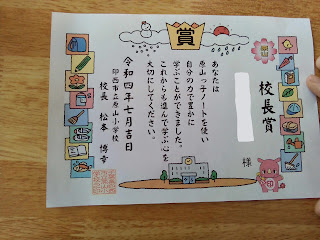 賞
校長賞
様
あなたは
原山っ子ノートを使い
自分の力で豊かに
学ぶことができました。
これからも進んで学ぶ心を
大切にしてください。
令和四年七月吉日
印西市立原山小学校
校長 松本 博幸
印